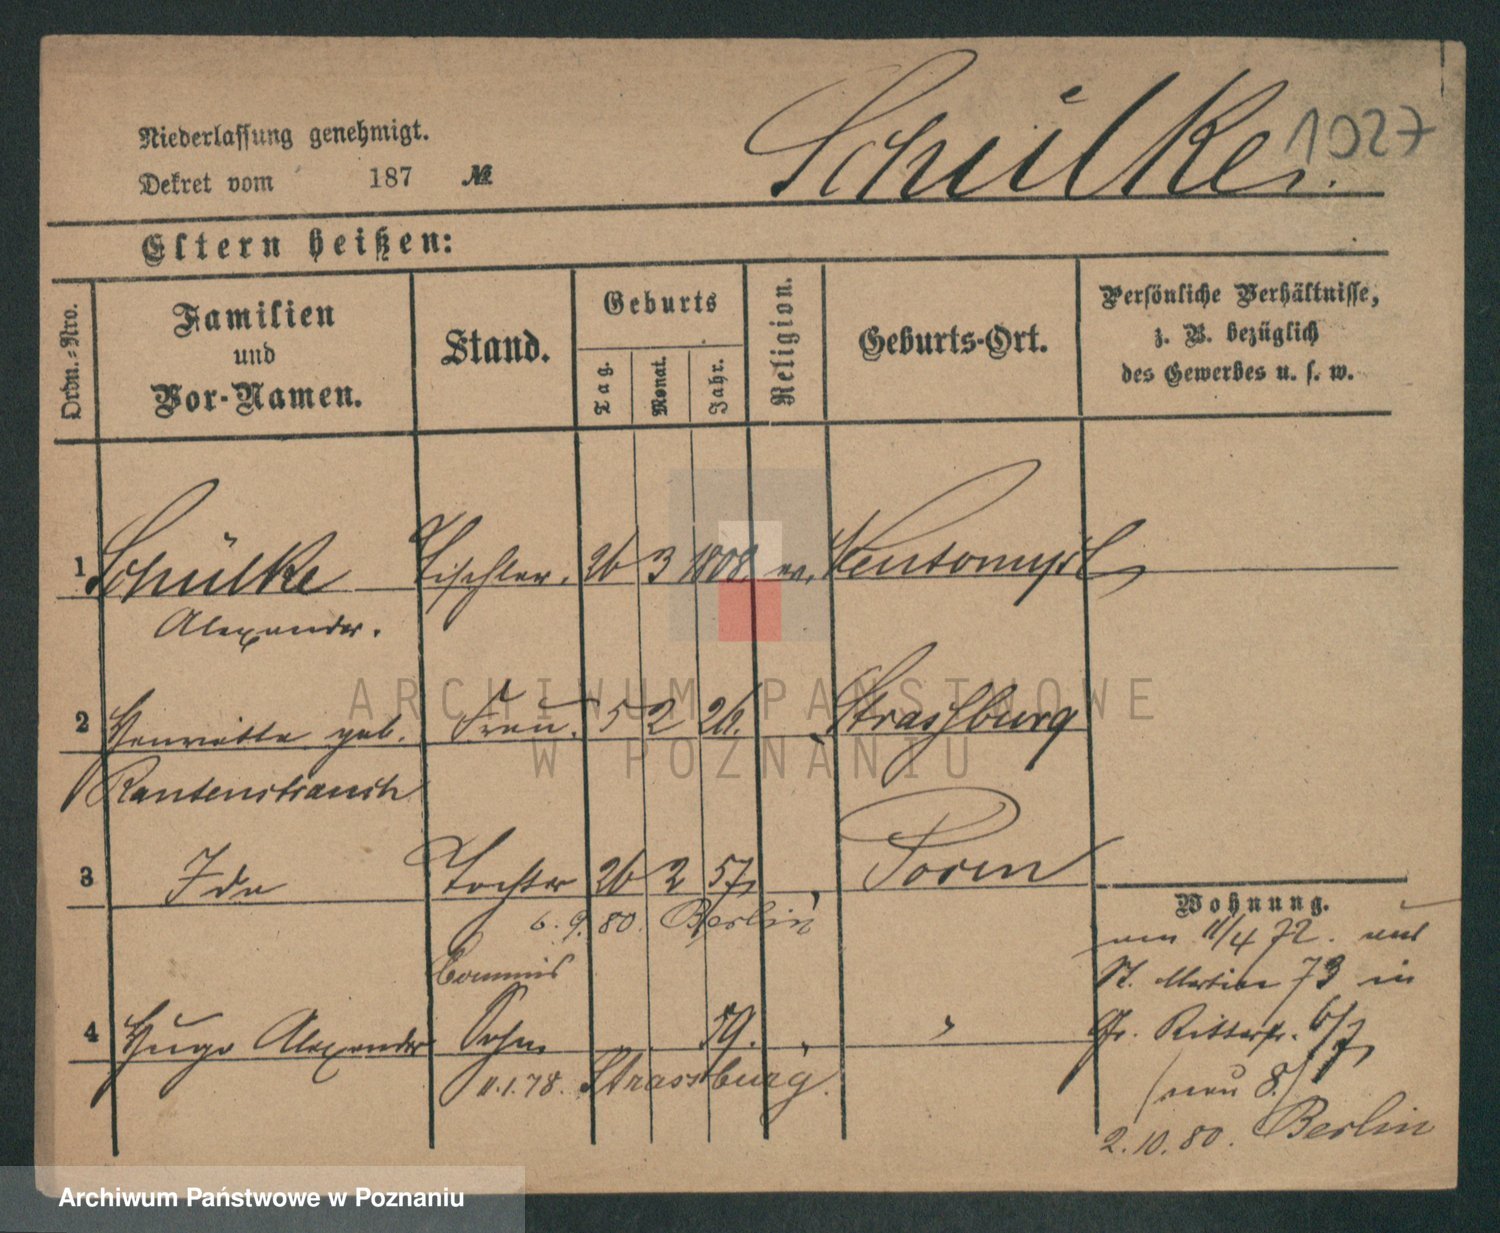 Schülke. 1927
Niederlassung genehmigt.
Dekret vom 187 №
Eltern heißen:
Ordn.-Nro. Familien und Vor-Namen. Stand. Geburts Tag. Monat. Jahr. Religion. Geburts-Ort. Persönliche Verhältnisse, z. B. bezüglich des Gewerbes u. s. w.
1 Schülke Tischler. 26 3 1808 ev. Neutomysl
Alexander.
2 Henriette geb. Frau. 5 2 26. Strassburg
Rautenstrauch
3 Ida Tochter 26 2 57 Posen
6.9.80. Berlin
Commis
4 Hugo Alexander Sohn 59.
11.1.78. Strassburg.
Wohnung.
11/4 72.
St. Martin 73 in
Gr. Ritterstr. 6/7
(neu 8.)
2.10.80. Berlin
ARCHIWUM PAŃSTWOWE
W POZNANIU
Archiwum Państwowe w Poznaniu